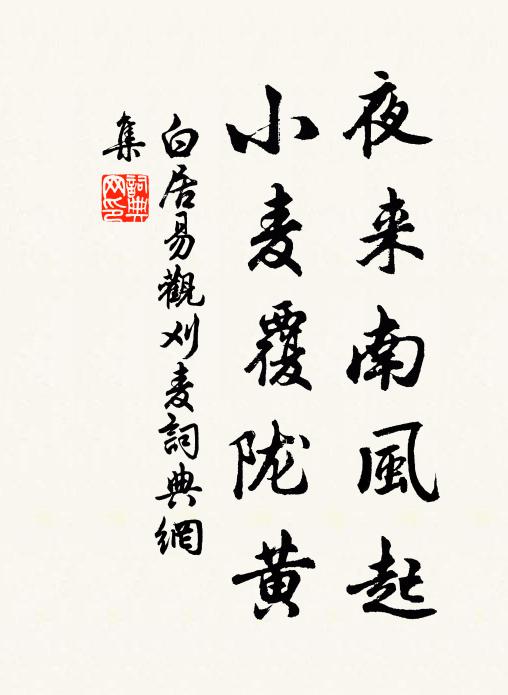 夜来南風起
小麦覆陇黄
白居易觀刈麦詞典網
集
詞典网印